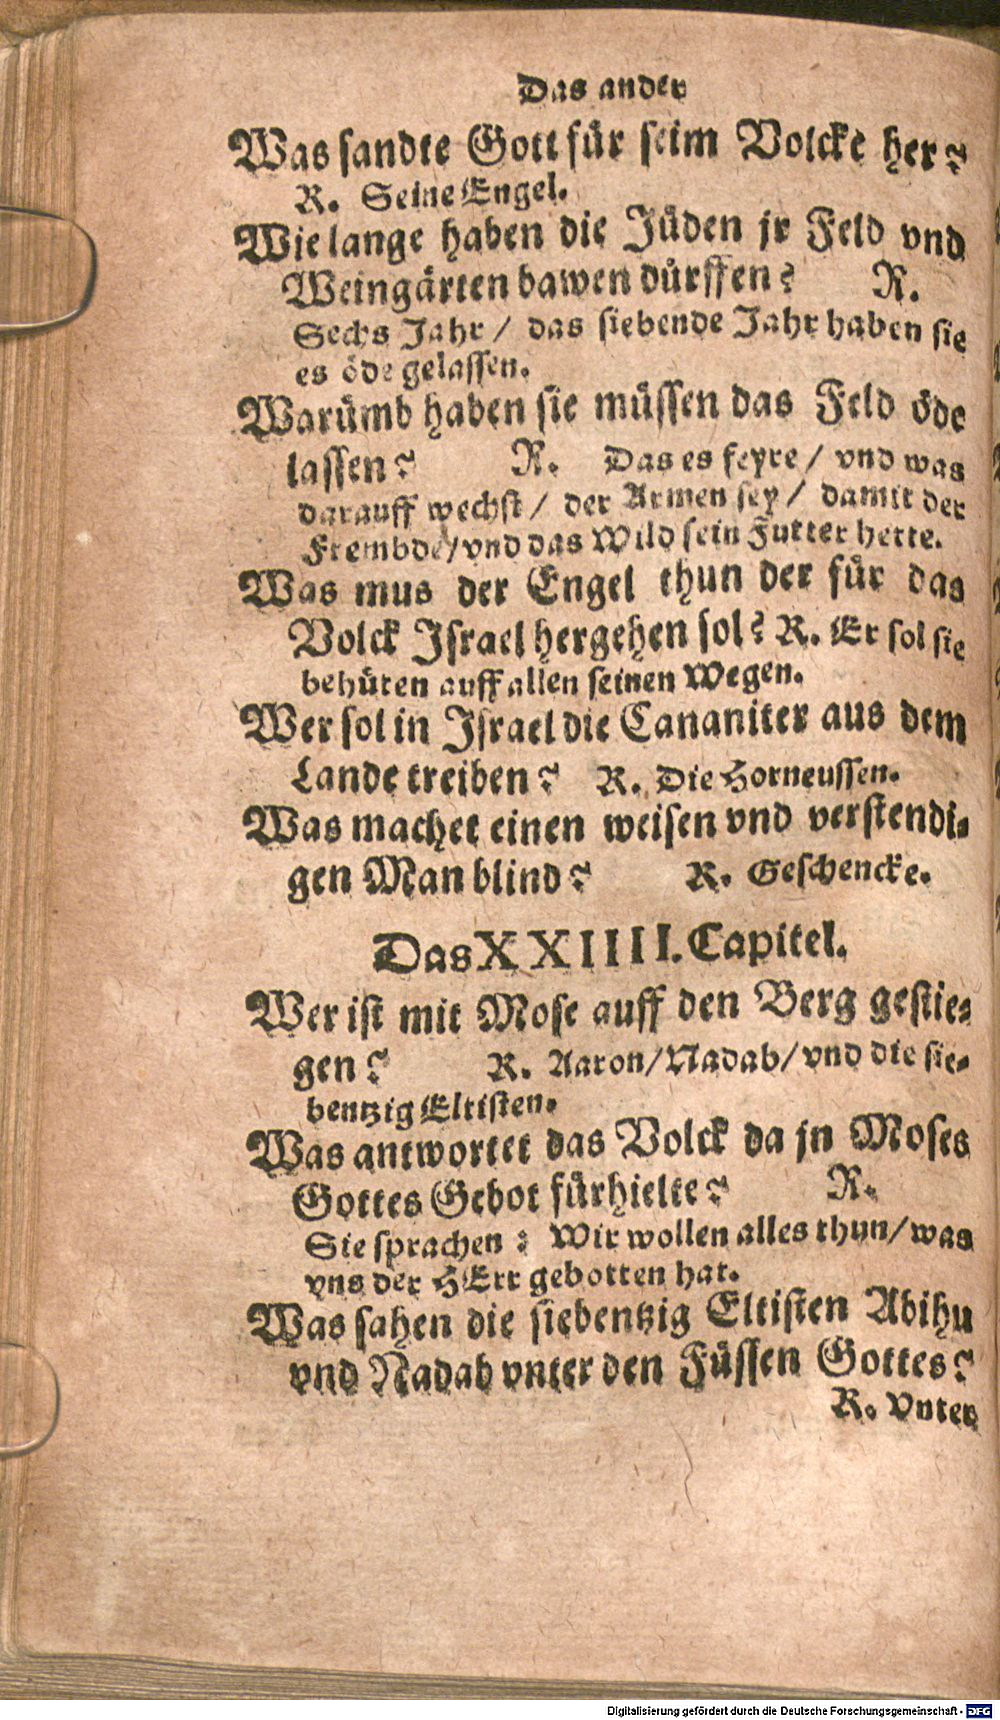 Das ander
Was sandte Gott für seim Volcke her?
R. Seine Engel.
Wie lange haben die Jüden jr Feld vnd
Weingärten bawen dürffen? R.
Sechs Jahr / das siebende Jahr haben sie
es öde gelassen.
Warümb haben sie müssen das Feld öde
lassen? R. Das es feyre / vnd was
darauff wechst / der Armen sey / damit der
Frembde / vnd das Wild sein Futter hette.
Was mus der Engel thun der für das
Volck Israel hergehen sol? R. Er sol sie
behüten auff allen seinen Wegen.
Wer sol in Israel die Cananiter aus dem
Lande treiben? R. Die Horneussen.
Was machet einen weisen vnd verstendi-
gen Man blind? R. Geschencke.
Das XXIIII. Capitel.
Wer ist mit Mose auff den Berg gestie-
gen? R. Aaron / Nadab / vnd die sie-
bentzig Eltisten.
Was antwortet das Volck da jn Moses
Gottes Gebot fürhielte? R.
Sie sprachen : Wir wollen alles thun / was
vns der HErr gebotten hat.
Was sahen die siebentzig Eltisten Abihu
vnd Nadab vnter den Füssen Gottes?
R. Vnter
Digitalisierung gefördert durch die Deutsche Forschungsgemeinschaft - DFG